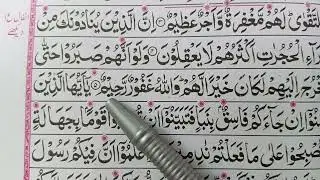 لِلتَّقْوٰى ؕ لَهُمْ مَّغْفِرَةٌ وَّاَجْرٌ عَظِيْمٌ اِنَّ الَّذِيْنَ يُنَادُوْنَكَ مِنْ
وَّرَآءِ الْحُجُرٰتِ اَكْثَرُهُمْ لَا يَعْقِلُوْنَ وَلَوْ اَنَّهُمْ صَبَرُوْا حَتّٰى
تَخْرُجَ اِلَيْهِمْ لَكَانَ خَيْرًا لَّهُمْ ؕ وَاللّٰهُ غَفُوْرٌ رَّحِيْمٌ يٰۤاَيُّهَا الَّذِيْنَ
اِنْ جَآءَكُمْ فَاسِقٌۢ بِنَبَاٍ فَتَبَيَّنُوْۤا اَنْ قَوْمًۢا بِجَهَالَةٍ
فَتُصْبِحُوْا عَلٰى مَا فَعَلْتُمْ نٰدِمِيْنَ وَاعْلَمُوْۤا اَنَّ فِيْكُمْ رَسُوْلَ